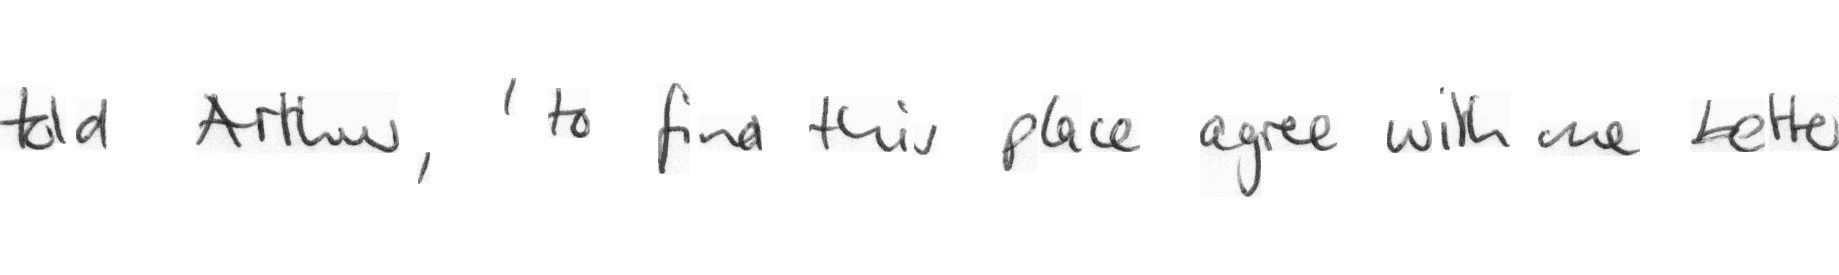 told Arthur, ' to find this place agree with me better